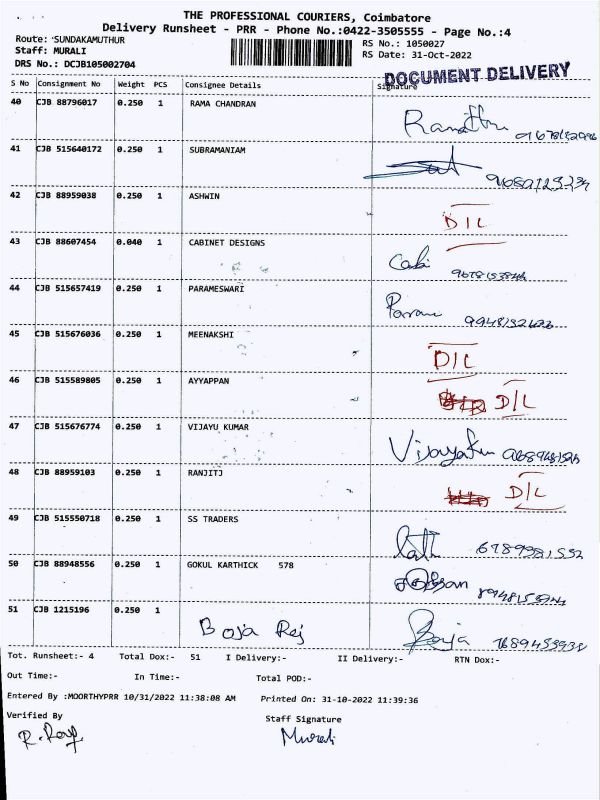 THE PROFESSIONAL COURIERS, Coimbatore
Delivery Runsheet - PRR - Phone No.:0422-3505555 - Page No.:4
Route: 'SUNDAKAMUTHUR
Staff: MURALI
DRS No.: DCJB105002704
RS No.: 1050027
RS Date: 31-Oct-2022
DOCUMENT DELIVERY
S No Consignment No Weight PCS Consignee Details Signature
40 CJB 88796017 0.250 1 RAMA CHANDRAN
41 CJB 515640172 0.250 1 SUBRAMANIAM
42 CJB 88959038 0.250 1 ASHWIN D/L
43 CJB 88607454 0.040 1 CABINET DESIGNS Cabi
44 CJB 515657419 0.250 1 PARAMESWARI
45 CJB 515676036 0.250 1 MEENAKSHI D/L
46 CJB 515589805 0.250 1 AYYAPPAN D/L
47 CJB 515676774 0.250 1 VIJAYU KUMAR
48 CJB 88959103 0.250 1 RANJITJ D/L
49 CJB 515550718 0.250 1 SS TRADERS
50 CJB 88948556 0.250 1 GOKUL KARTHICK 578
51 CJB 1215196 0.250 1 Boja Raj Boja
Tot. Runsheet:- 4 Total Dox:- 51 I Delivery:- II Delivery:- RTN Dox:-
Out Time:- In Time:- Total POD:-
Entered By :MOORTHYPRR 10/31/2022 11:38:08 AM Printed On: 31-10-2022 11:39:36
Verified By Staff Signature
R. Roy Murali